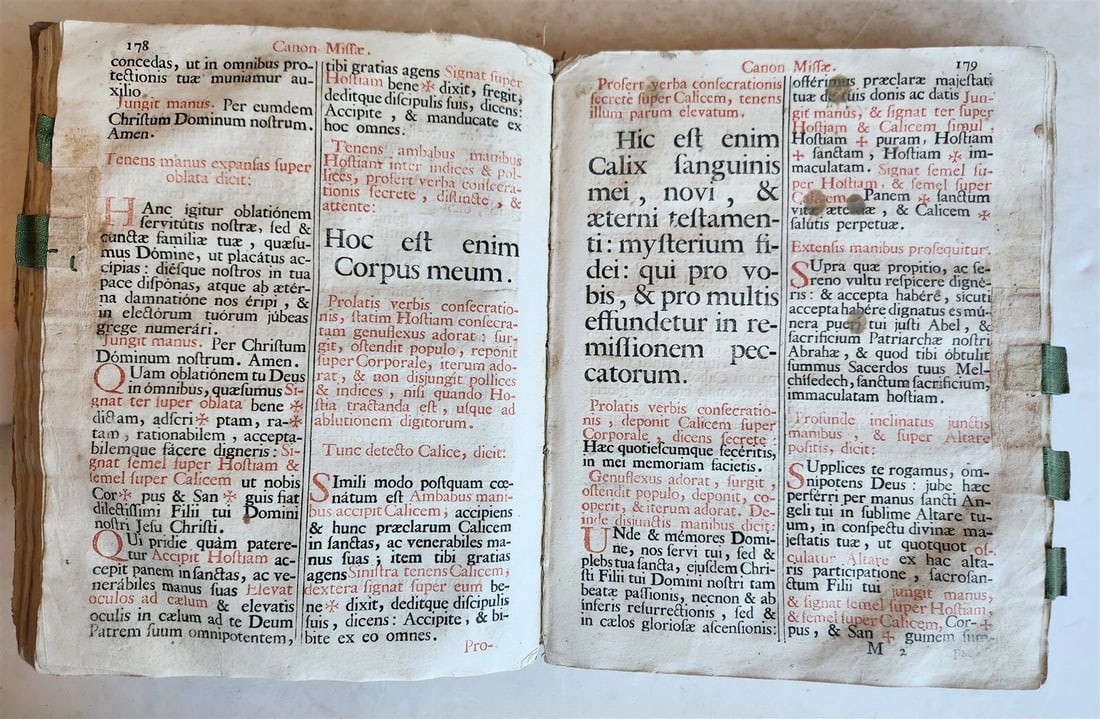 178
Canon Missæ.
concedas, ut in omnibus pro-
tectionis tuæ muniamur au-
xilio.
Jungit manus. Per eumdem
Christum Dominum nostrum.
Amen.
Tenens manus expansas super
oblata dicit:
HAnc igitur oblatiónem
servitútis nostræ, sed &
cunctæ familiæ tuæ, quæsu-
mus Dómine, ut placátus ac-
cipias: diésque nostros in tua
pace dispónas, atque ab ætér-
na damnatióne nos éripi, &
in electórum tuórum júbeas
grege numerári.
Jungit manus. Per Christum
Dóminum nostrum. Amen.
QUam oblatiónem tu Deus
in ómnibus, quæsumus Si-
gnat ter super oblata bene ✠
dictam, adscri✠ptam, ra-✠
tam, rationabilem, accepta-
bilemque fácere digneris: Si-
gnat semel super Hostiam &
semel super Calicem ut nobis
Cor✠ pus & San✠ guis fiat
dilectissimi Filii tui Domini
nostri Jesu Christi.
QUi pridie quàm patere-
tur Accipit Hostiam ac-
cepit panem in sanctas, ac ve-
nerábiles manus suas Elevat
oculos ad cælum & elevatis
oculis in cælum ad te Deum
Patrem suum omnipotentem,
tibi gratias agens Signat super
Hostiam bene✠ dixit, fregit,
deditque discipulis suis, dicens:
Accipite, & manducate ex
hoc omnes.
Tenens ambabus manibus
Hostiam inter indices & pol-
lices, profert verba consecra-
tionis secrete, distincte, &
attente:
Hoc est enim
Corpus meum.
Prolatis verbis consecratio-
nis, statim Hostiam consecra-
tam genuflexus adorat: sur-
git, ostendit populo, reponit
super Corporale, iterum ado-
rat, & non disjungit pollices
& indices, nisi quando Ho-
stia tractanda est, usque ad
ablutionem digitorum.
Tunc detecto Calice, dicit:
SImili modo postquam cœ-
nátum est Ambabus mani-
bus accipit Calicem, accipiens
& hunc præclarum Calicem
in sanctas, ac venerabiles ma-
nus suas; item tibi gratias
agens Sinistra tenens Calicem,
dextera signat super eum be-
ne✠ dixit, deditque discipulis
suis, dicens: Accipite, & bi-
bite ex eo omnes.
Pro-
Canon Missæ.
179
Profert verba consecrationis
secrete super Calicem, tenens
illum parum elevatum.
Hic est enim
Calix sanguinis
mei, novi, &
æterni testamen-
ti: mysterium fi-
dei: qui pro vo-
bis, & pro multis
effundetur in re-
missionem pec-
catorum.
Prolatis verbis consecratio-
nis, deponit Calicem super
Corporale, dicens secrete:
Hæc quotiescumque fecéritis,
in mei memoriam facietis.
Genuflexus adorat, surgit,
ostendit populo, deponit, co-
operit, & iterum adorat. De-
inde disjunctis manibus dicit:
UNde & mémores Domi-
ne, nos servi tui, sed &
plebs tua sancta, ejusdem Chri-
sti Filii tui Domini nostri tam
beatæ passionis, necnon & ab
inferis resurrectionis, sed &
in cælos gloriosæ ascensionis:
offérimus præclaræ majestati
tuæ de tuis donis ac datis Jun-
git manus, & signat ter super
Hostiam & Calicem simul,
Hostiam ✠ puram, Hostiam
✠ sanctam, Hostiam ✠ im-
maculatam. Signat semel su-
per Hostiam, & semel super
Calicem Panem ✠ sanctum
vitæ æternæ, & Calicem ✠
salútis perpetuæ.
Extensis manibus prosequitur.
SUpra quæ propitio, ac se-
reno vultu respicere digné-
ris: & accepta habére, sicuti
accepta habére dignatus es mú-
nera pueri tui justi Abel, &
sacrificium Patriarchæ nostri
Abrahæ, & quod tibi óbtulit
summus Sacerdos tuus Mel-
chisedech, sanctum sacrificium,
immaculatam hostiam.
Profunde inclinatus junctis
manibus, & super Altare
positis, dicit:
SUpplices te rogamus, om-
nipotens Deus: jube hæc
perférri per manus sancti An-
geli tui in sublime Altare tu-
um, in conspectu divinæ ma-
jestatis tuæ, ut quotquot os-
culatur Altare ex hac alta-
ris participatione, sacrosan-
ctum Filii tui jungit manus,
& signat semel super Hostiam,
& semel super Calicem, Cor-✠
pus, & San ✠ guinem sum-
M 2